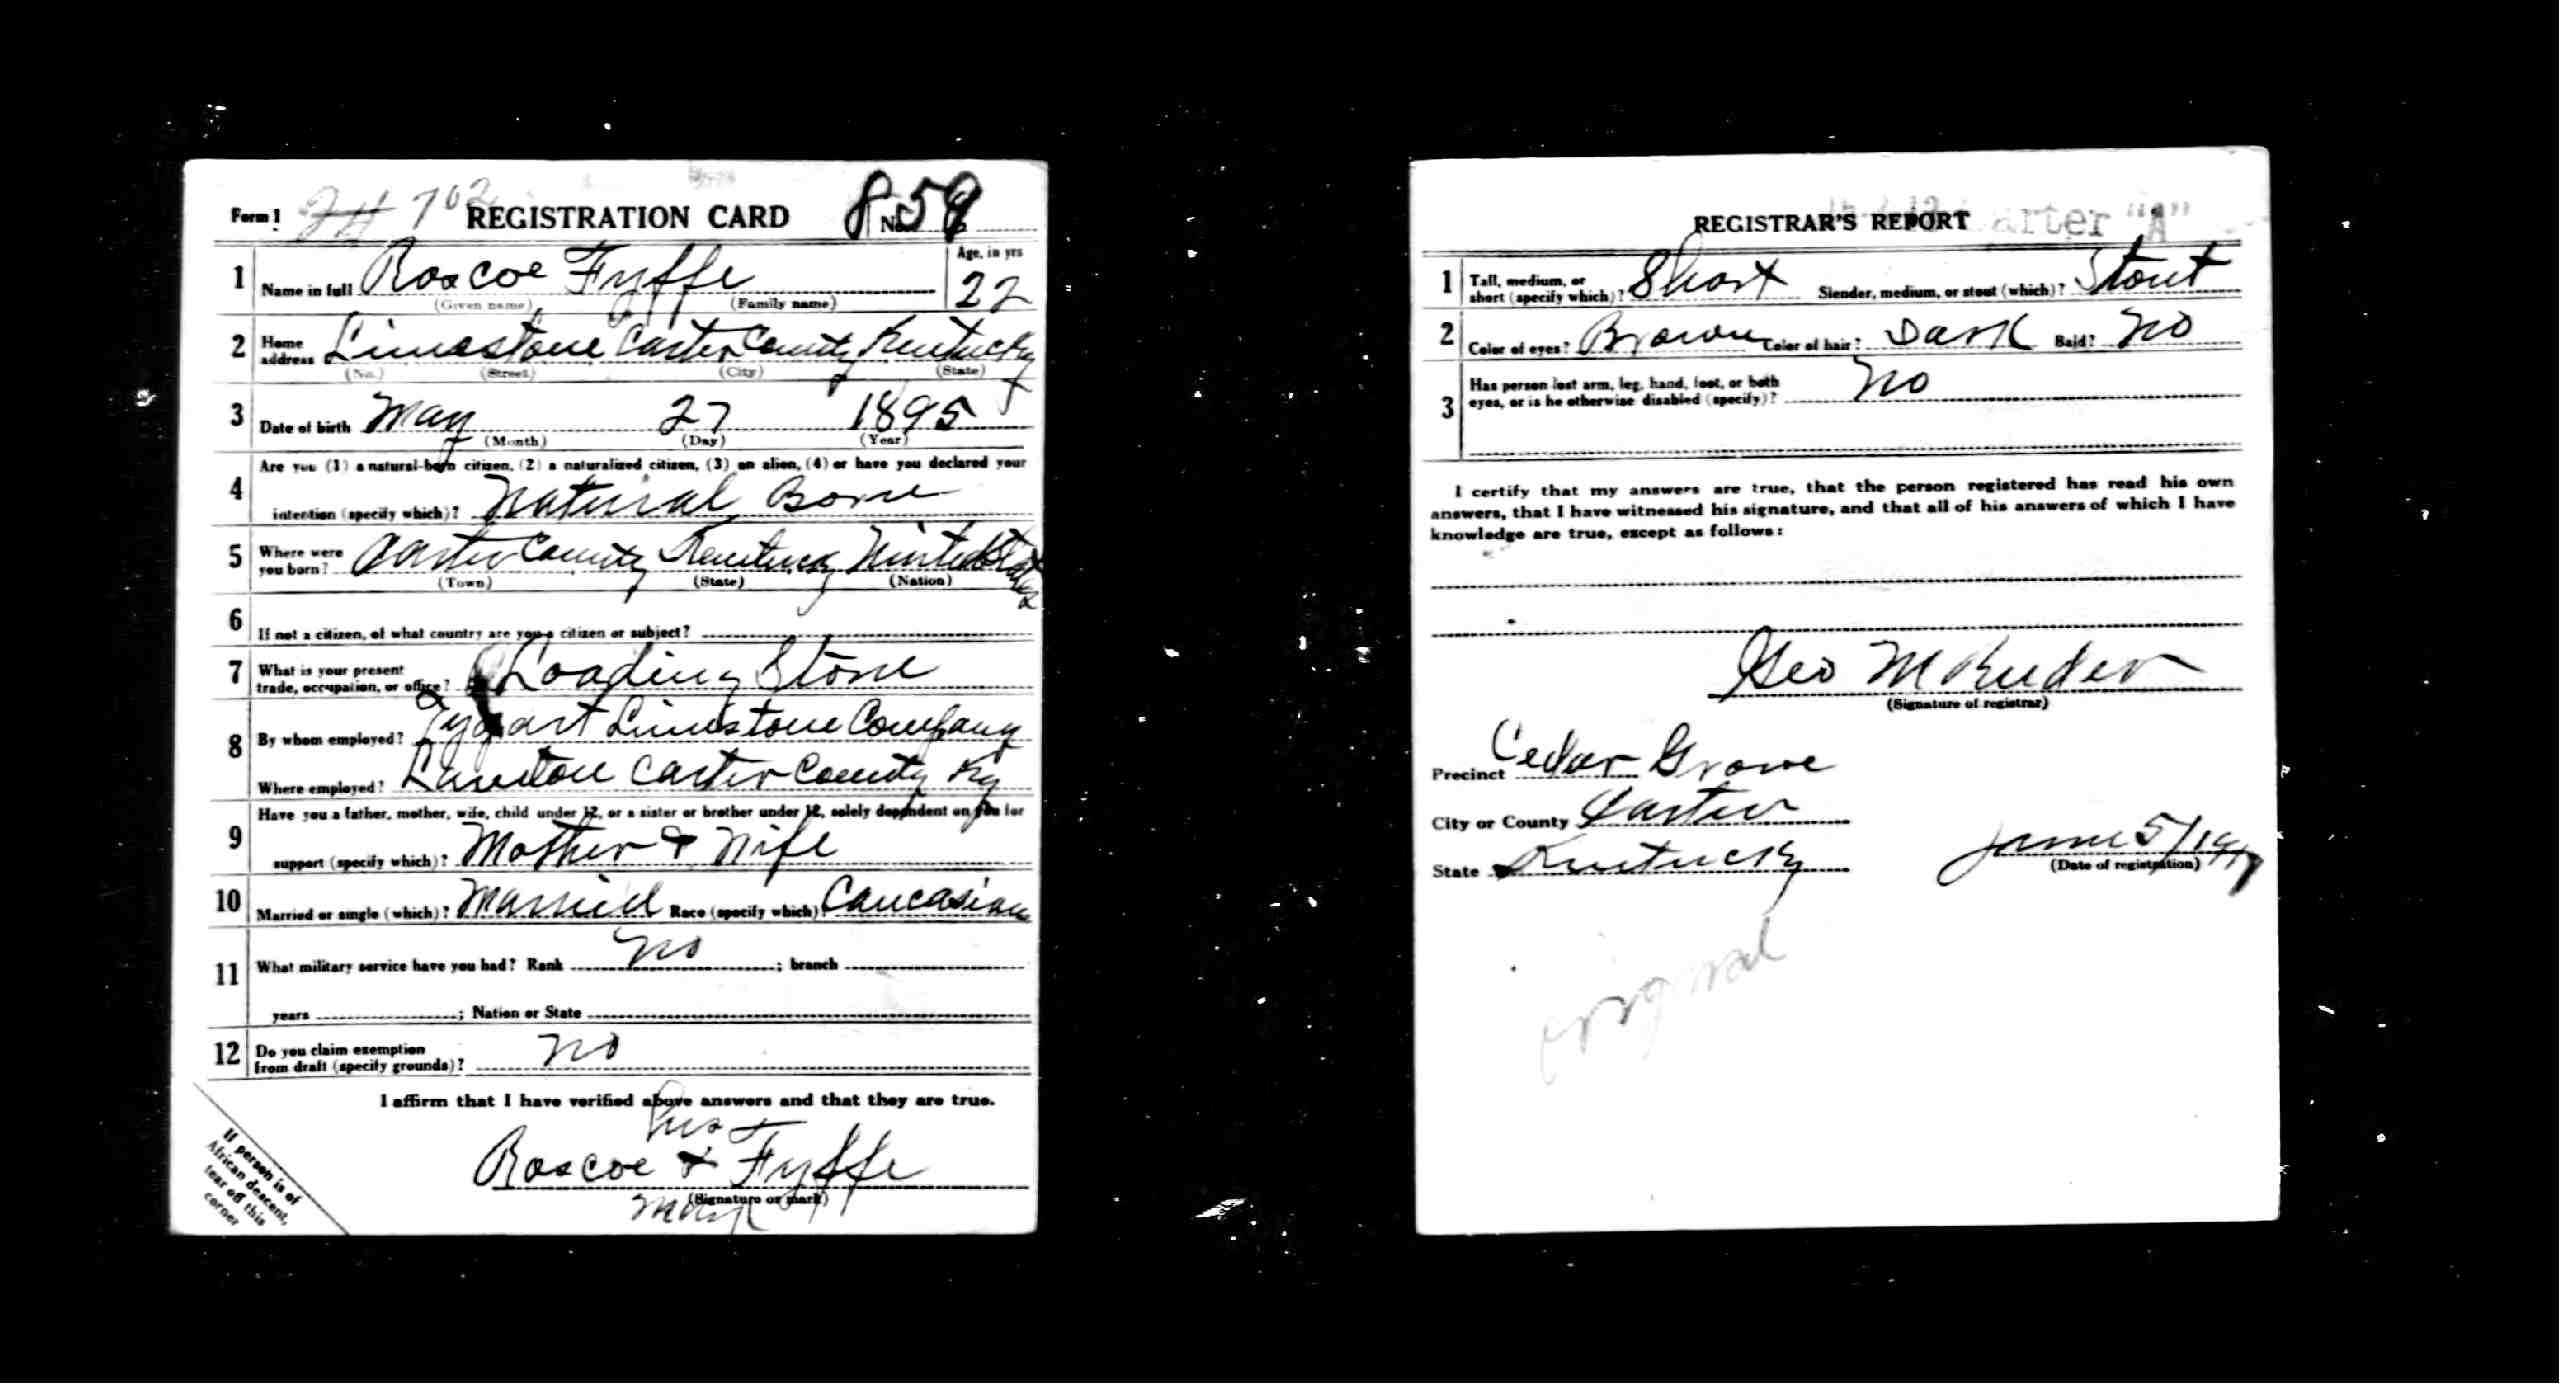 Form 1 702 REGISTRATION CARD No. 859
1 Name in full Roscoe Fyffe Age, in yrs 22
(Given name) (Family name)
2 Home address Limestone Carter County Kentucky
(No.) (Street) (City) (State)
3 Date of birth May 27 1895
(Month) (Day) (Year)
4 Are you (1) a natural-born citizen, (2) a naturalized citizen, (3) an alien, (4) or have you declared your
intention (specify which)? Natural Borne
5 Where were you born? Carter County Kentucky United States
(Town) (State) (Nation)
6 If not a citizen, of what country are you a citizen or subject?
7 What is your present trade, occupation, or office? Loading Stone
8 By whom employed? Tygart Limestone Company
Where employed? Lawton Carter County Ky
9 Have you a father, mother, wife, child under 12, or a sister or brother under 12, solely dependent on you for
support (specify which)? Mother & Wife
10 Married or single (which)? Married Race (specify which)? Caucasian
11 What military service have you had? Rank No ; branch
years ; Nation or State
12 Do you claim exemption from draft (specify grounds)? No
I affirm that I have verified above answers and that they are true.
his
Roscoe x Fyffe
(Signature or mark)
mark
If person is of
African descent,
tear off this
corner
REGISTRAR'S REPORT Carter "A"
1 Tall, medium, or short (specify which)? Short Slender, medium, or stout (which)? Stout
2 Color of eyes? Brown Color of hair? Dark Bald? No
3 Has person lost arm, leg, hand, foot, or both
eyes, or is he otherwise disabled (specify)? No
I certify that my answers are true, that the person registered has read his own
answers, that I have witnessed his signature, and that all of his answers of which I have
knowledge are true, except as follows:
Geo M Ruder
(Signature of registrar)
Precinct Cedar Grove
City or County Carter
State Kentucky June 5/1917
(Date of registration)
original